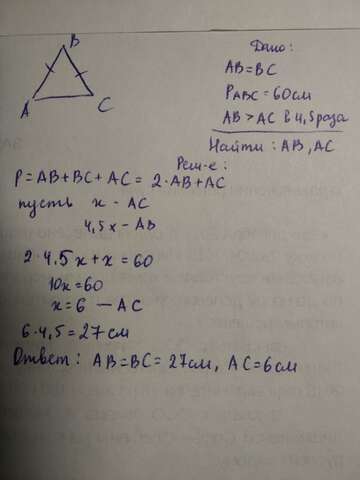 B
A
C
Дано:
AB=BC
PABC=60см
AB>AC в 4,5 раза
Найти: AB, AC
Реш-е:
P=AB+BC+AC= 2·AB+AC
пусть x - AC
4,5x - AB
2·4,5x+x=60
10x=60
x=6 — AC
6·4,5=27см
Ответ: AB=BC=27см, AC=6см